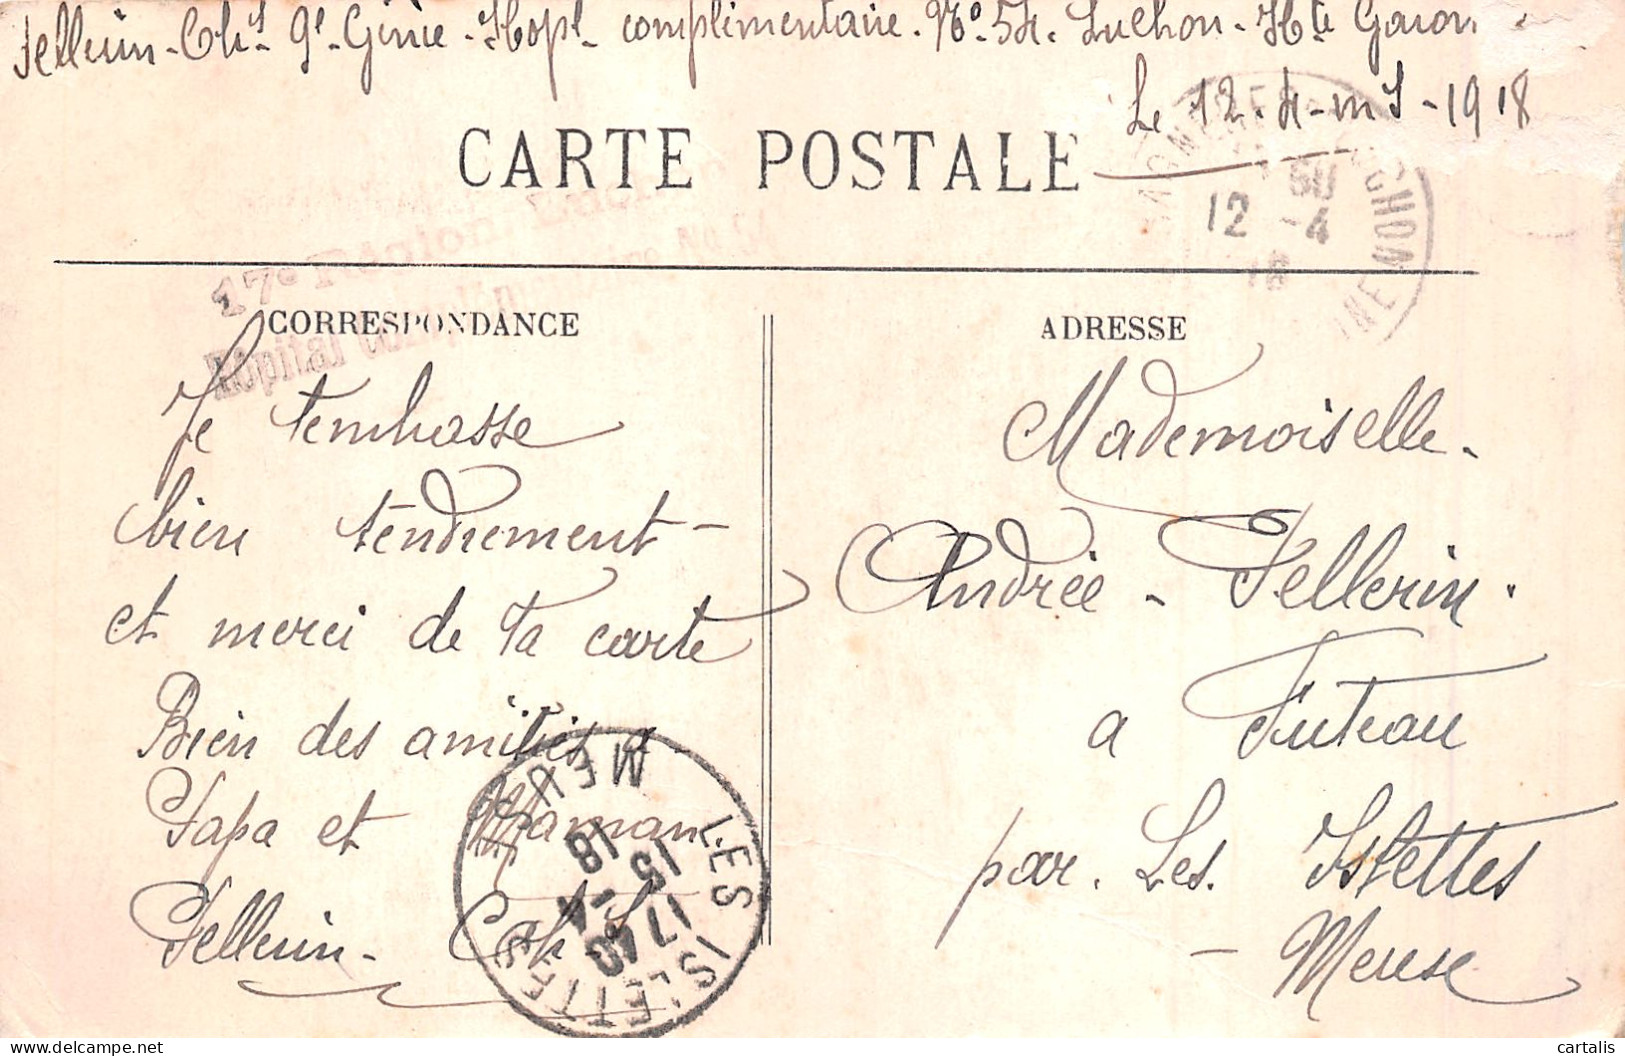 Pellerin - Ch.s 9e - Génie - Hopl complimentaire. No. 54. Luchon - Hte Garon
Le 12. 4 - ms - 1918
CARTE POSTALE
12 -4
17e Région
Hôpital Complémentaire No 54
CORRESPONDANCE
ADRESSE
Je tembrasse
bien tendrement -
et merci de ta carte
Bien des amitiés a
Papa et Maman
Pellerin - Ch.s
LES ISLETTES
MEUSE
17 40
15 -4
18
Mademoiselle.
Andrée - Pellerin.
a Futeau
par. Les. Islettes
- Meuse
cartalis